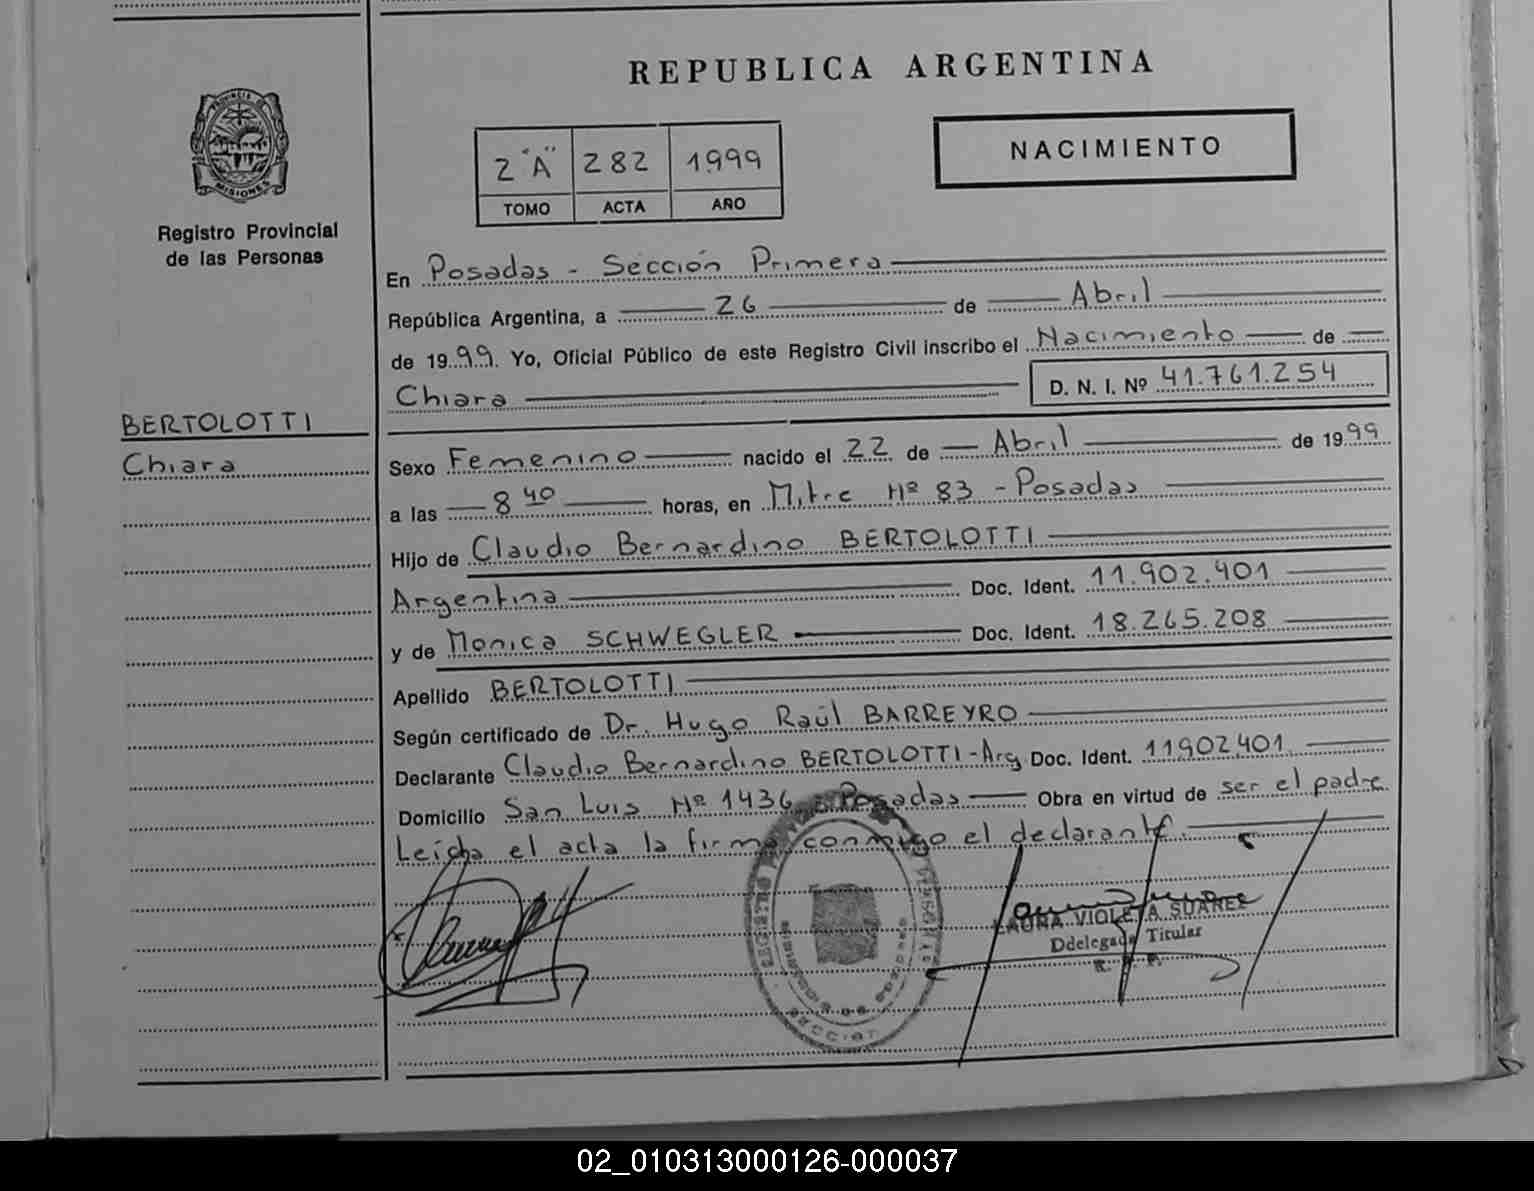 REPUBLICA ARGENTINA
PROVINCIA DE
MISIONES
Registro Provincial
de las Personas
2 "A" 282 1999
TOMO ACTA AÑO
NACIMIENTO
En Posadas - Sección Primera
República Argentina, a 26 de Abril
de 1999. Yo, Oficial Público de este Registro Civil inscribo el Nacimiento de
Chiara D. N. I. Nº 41.761.254
BERTOLOTTI
Chiara
Sexo Femenino nacido el 22 de Abril de 1999
a las 8 40 horas, en Mitre Nº 83 - Posadas
Hijo de Claudio Bernardino BERTOLOTTI
Argentina Doc. Ident. 11.902.401
y de Monica SCHWEGLER Doc. Ident. 18.265.208
Apellido BERTOLOTTI
Según certificado de Dr. Hugo Raúl BARREYRO
Declarante Claudio Bernardino BERTOLOTTI-Arg Doc. Ident. 11902401
Domicilio San Luis Nº 1436 - Posadas Obra en virtud de ser el padre
Leída el acta la firma conmigo el declarante.
LAURA VIOLETA SUAREZ
Ddelegada Titular
R. P. P.
02_010313000126-000037